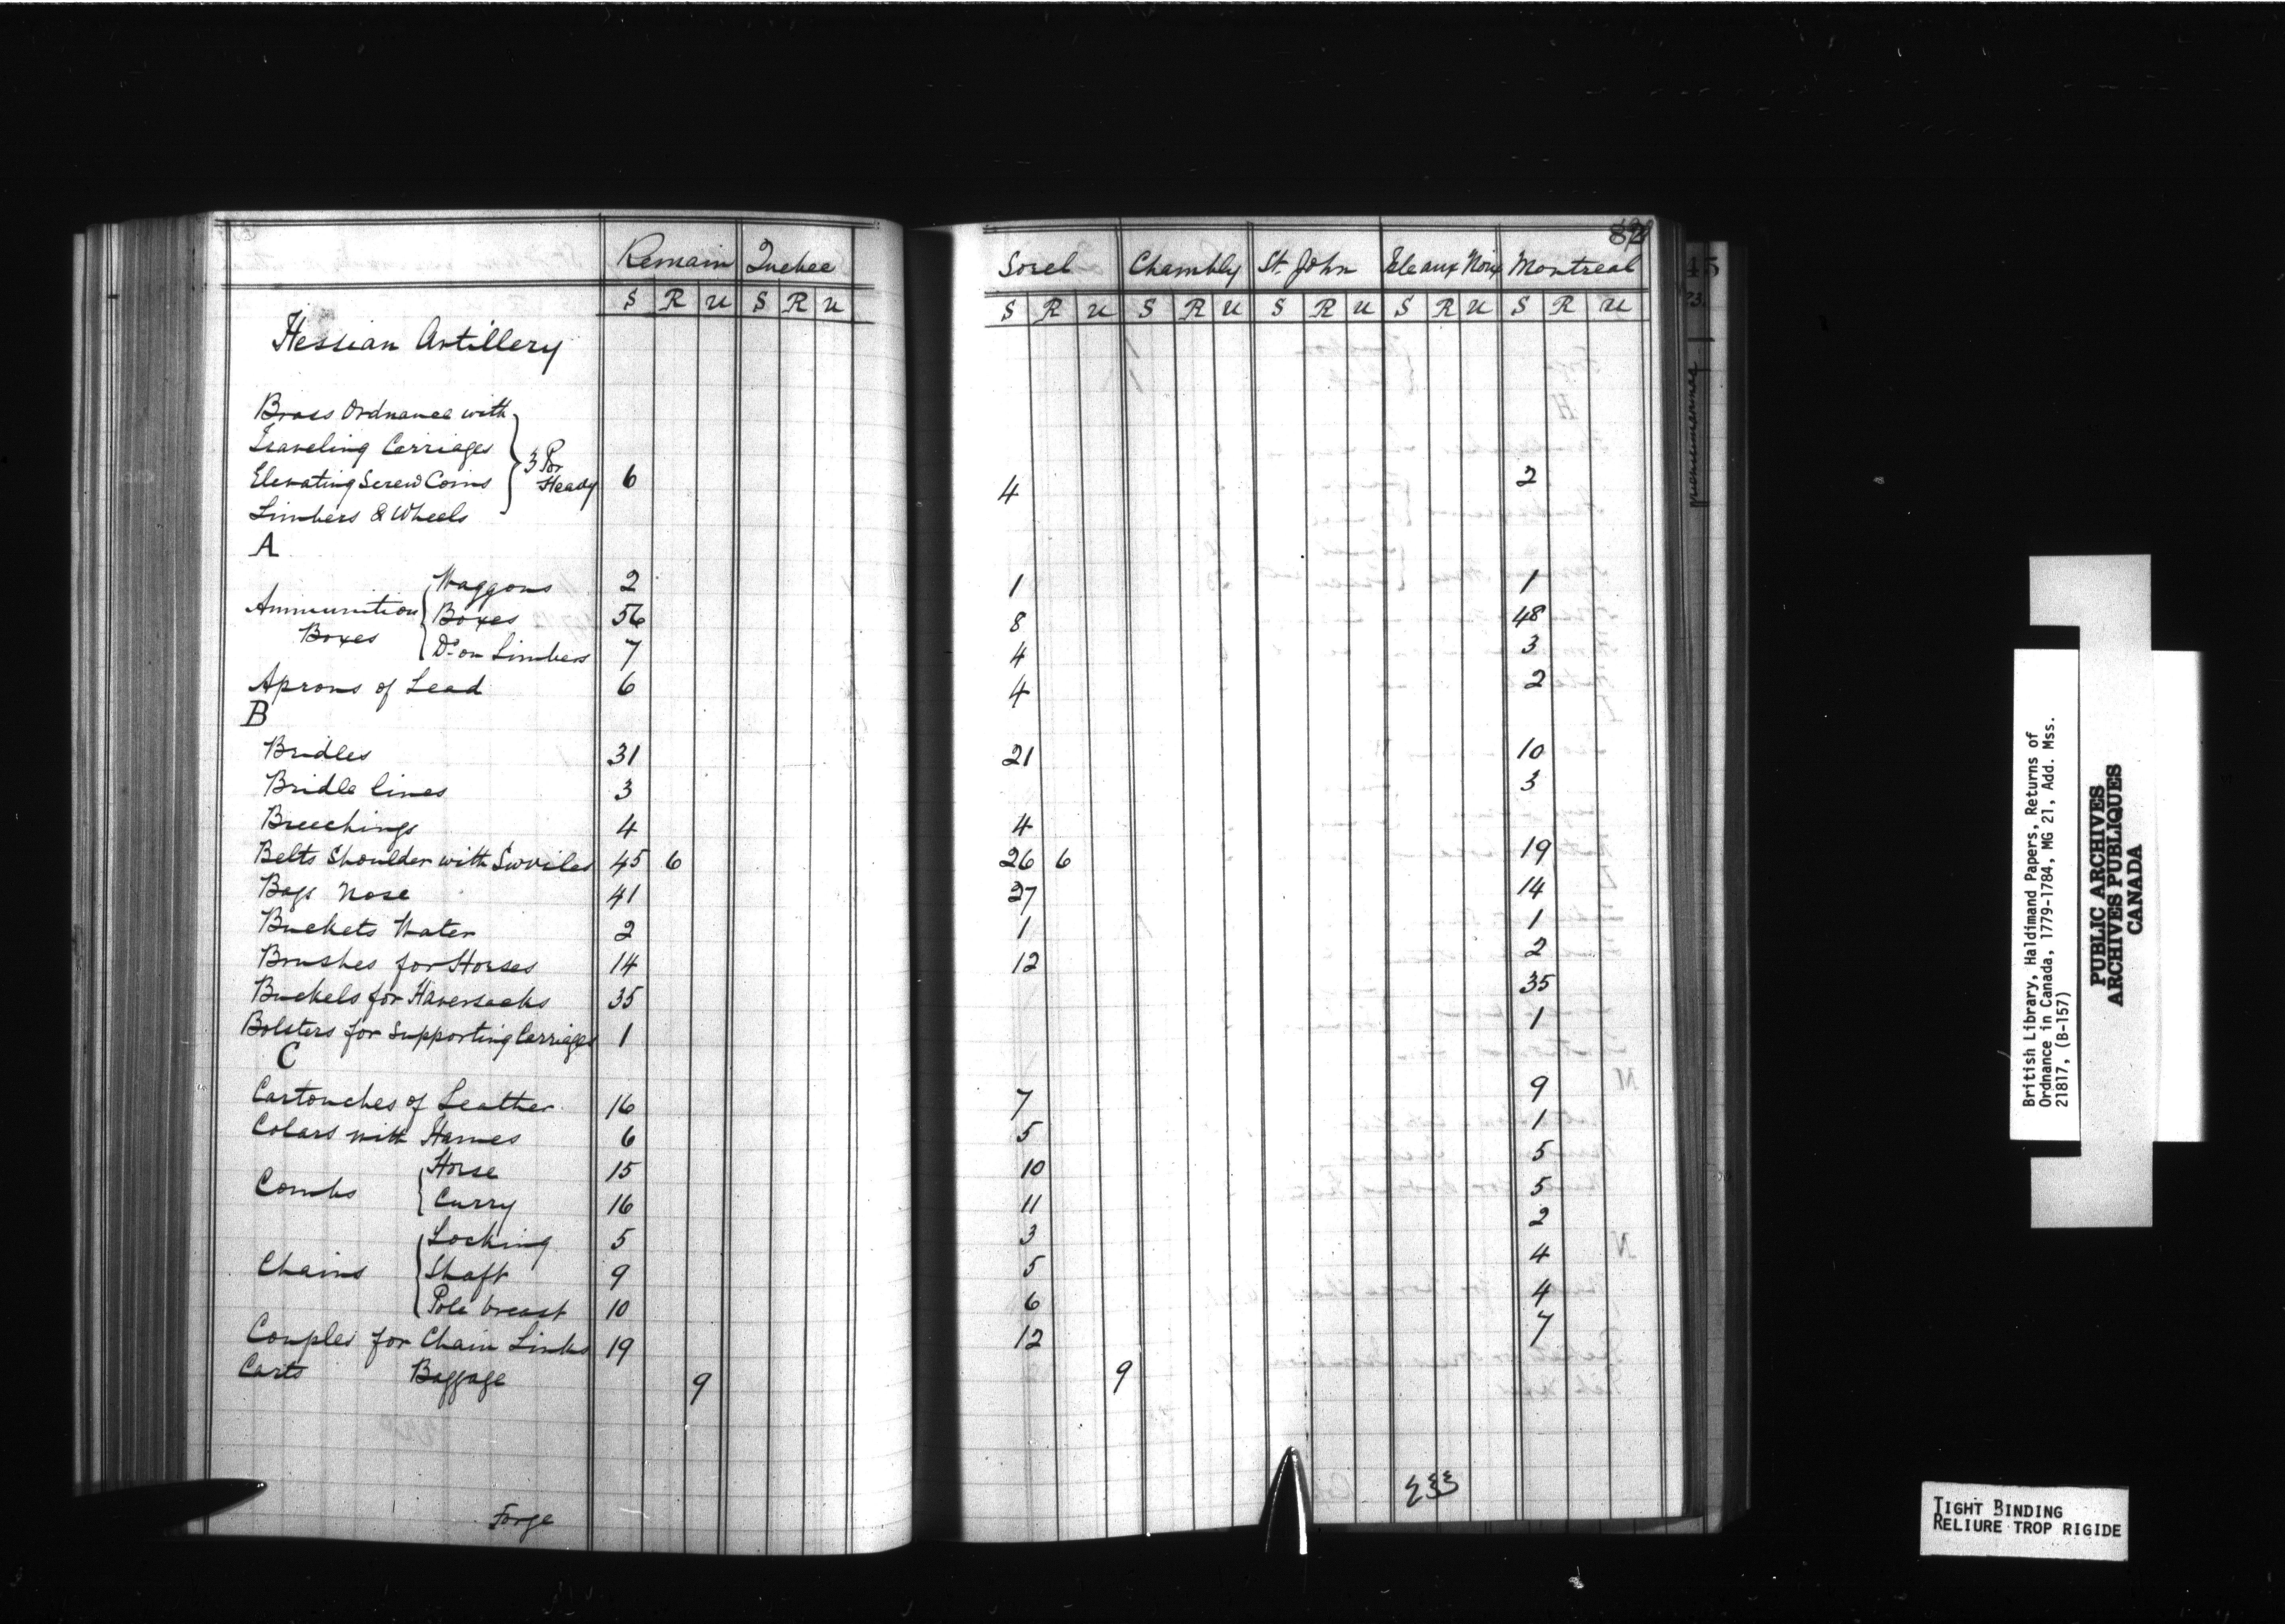 82
Remain Quebec Sorel Chambly St. John Isle aux Noix Montreal
S R U S R U S R U S R U S R U S R U S R U
Hessian Artillery
Brass Ordnance with
Traveling Carriages
Elevating Screw Coins 3 Por Heavy 6 4 2
Limbers & Wheels
A
Ammunition Boxes Waggons 2 1 1
Boxes 56 8 48
Do on Limbers 7 4 3
Aprons of Lead 6 4 2
B
Bridles 31 21 10
Bridle lines 3 3
Breechings 4 4
Belts Shoulder with Swviles 45 6 26 6 19
Bags Nose 41 27 14
Buckets Water 2 1 1
Brushes for Horses 14 12 2
Buckels for Haversacks 35 35
Bolsters for Supporting Carriages 1 1
C
Cartouches of Leather 16 7 9
Colars with Hames 6 5 1
Combs Horse 15 10 5
Curry 16 11 5
Chains Locking 5 3 2
Shaft 9 5 4
Pole breast 10 6 4
Couples for Chain Links 19 12 7
Carts Baggage 9 9
Forge
233
45
British Library, Haldimand Papers, Returns of
Ordnance in Canada, 1779-1784, MG 21, Add. Mss.
21817, (B-157)
PUBLIC ARCHIVES
ARCHIVES PUBLIQUES
CANADA
TIGHT BINDING
RELIURE TROP RIGIDE